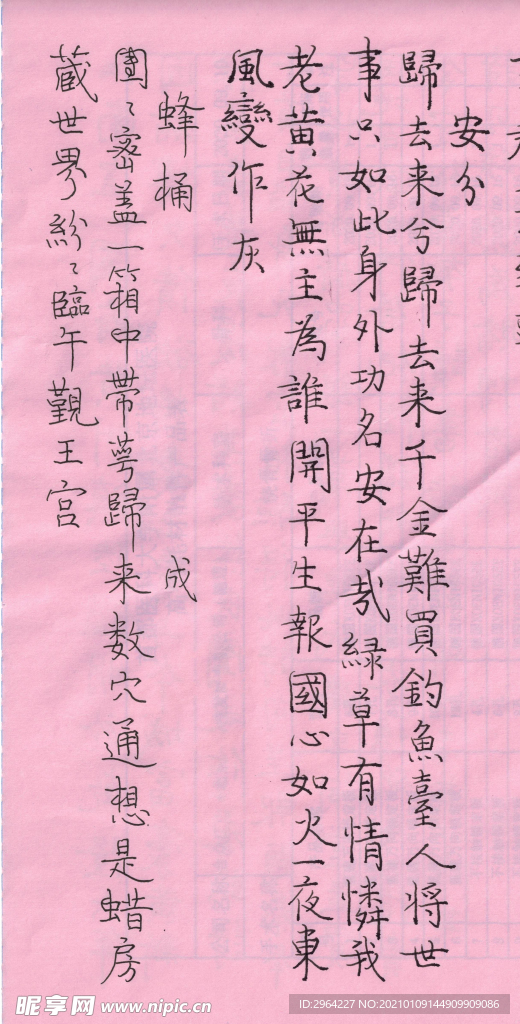 安分
歸去来兮歸去来千金難買釣魚臺人将世
事只如此身外功名安在哉綠草有情憐我
老黄花無主為誰開平生報國心如火一夜東
風變作灰
蜂桶 成
團〻密蓋一箱中帶萼歸来数穴通想是蜡房
蔵世界紛〻臨午觐王宫
昵享网 www.nipic.cn
ID:2964227 NO:20210109144909909086